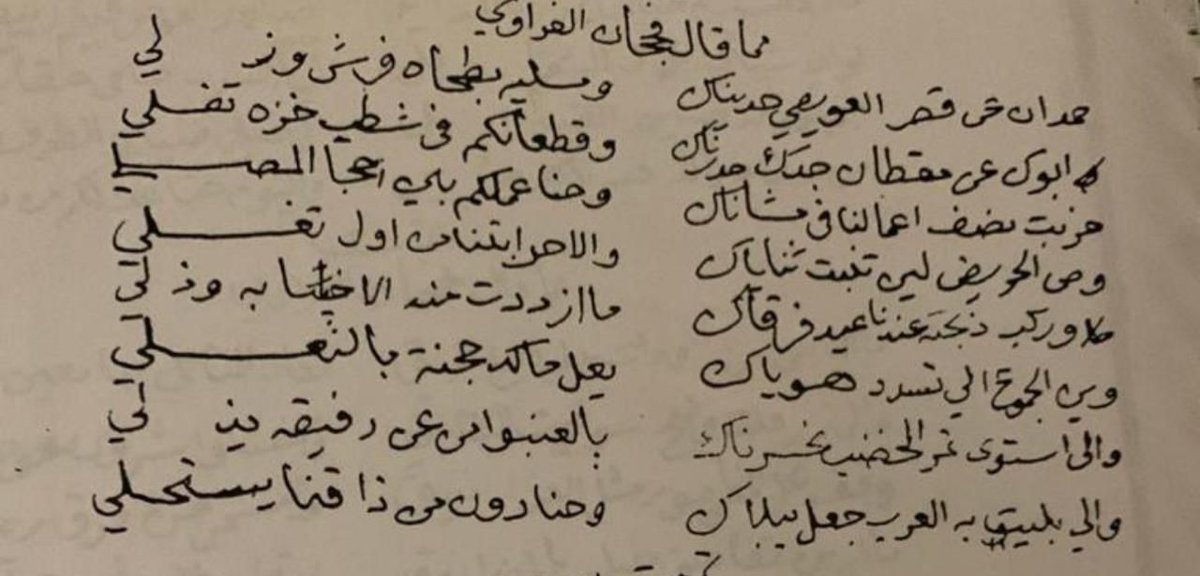 مما قال فجحان الفراوي
حدان عن قصر العويصي حديناك وسليه بطحاه فرش وز لي
ابوك عن مقطان جدك حدرناك وقطعانكم في شطيب خزه تفلي
حزبت بضف اعمالنا في مشاناك وحنا عملكم بلي احجا المصلي
ومن الحريض لين تغبت ثناياك والاحرابتنا من اول تغلي
وركب عندنا عيد فرقاك ما ازددت منه الا به وذ لي
وين الجموع الي تسدد هوياك يعل ماكد جنة بالثعلي
والى استوى غر الخضب خسرناك يالعنبوا من عن رفيقه يذ لي
والي بليت به العرب جعل يبلاك وحنا دون من ذاقنا يستحلي